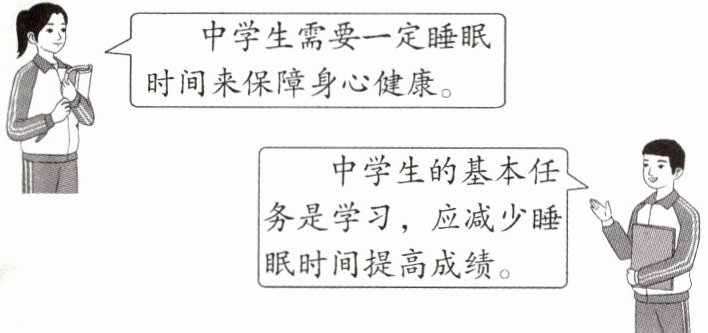 中学生需要一定睡眠
时间来保障身心健康。
中学生的基本任
务是学习，应减少睡
眠时间提高成绩。